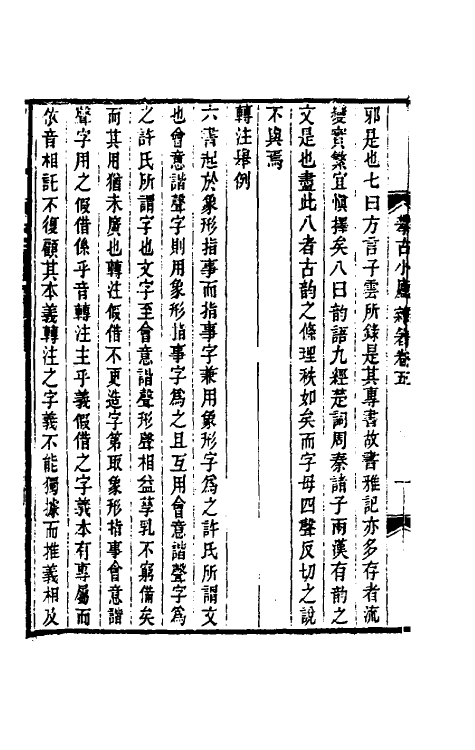 學古小廬雜著卷五
一
邪是也七曰方言子雲所錄是其專書故書雅記亦多存者流
變實繁宜慎擇矣八曰韵語九經楚詞周秦諸子兩漢有韵之
文是也盡此八者古韵之條理秩如矣而字母四聲反切之說
不與焉
轉注舉例
六書起於象形指事而指事字兼用象形字爲之許氏所謂文
也會意諧聲字則用象形指事字爲之且互用會意諧聲字爲
之許氏所謂字也文字至會意諧聲形聲相益孳乳不窮備矣
而其用猶未廣也轉注假借不更造字第取象形指事會意諧
聲字用之假借係乎音轉注主乎義假借之字義本有專屬而
依音相託不復顧其本義轉注之字義不能獨據而推義相及